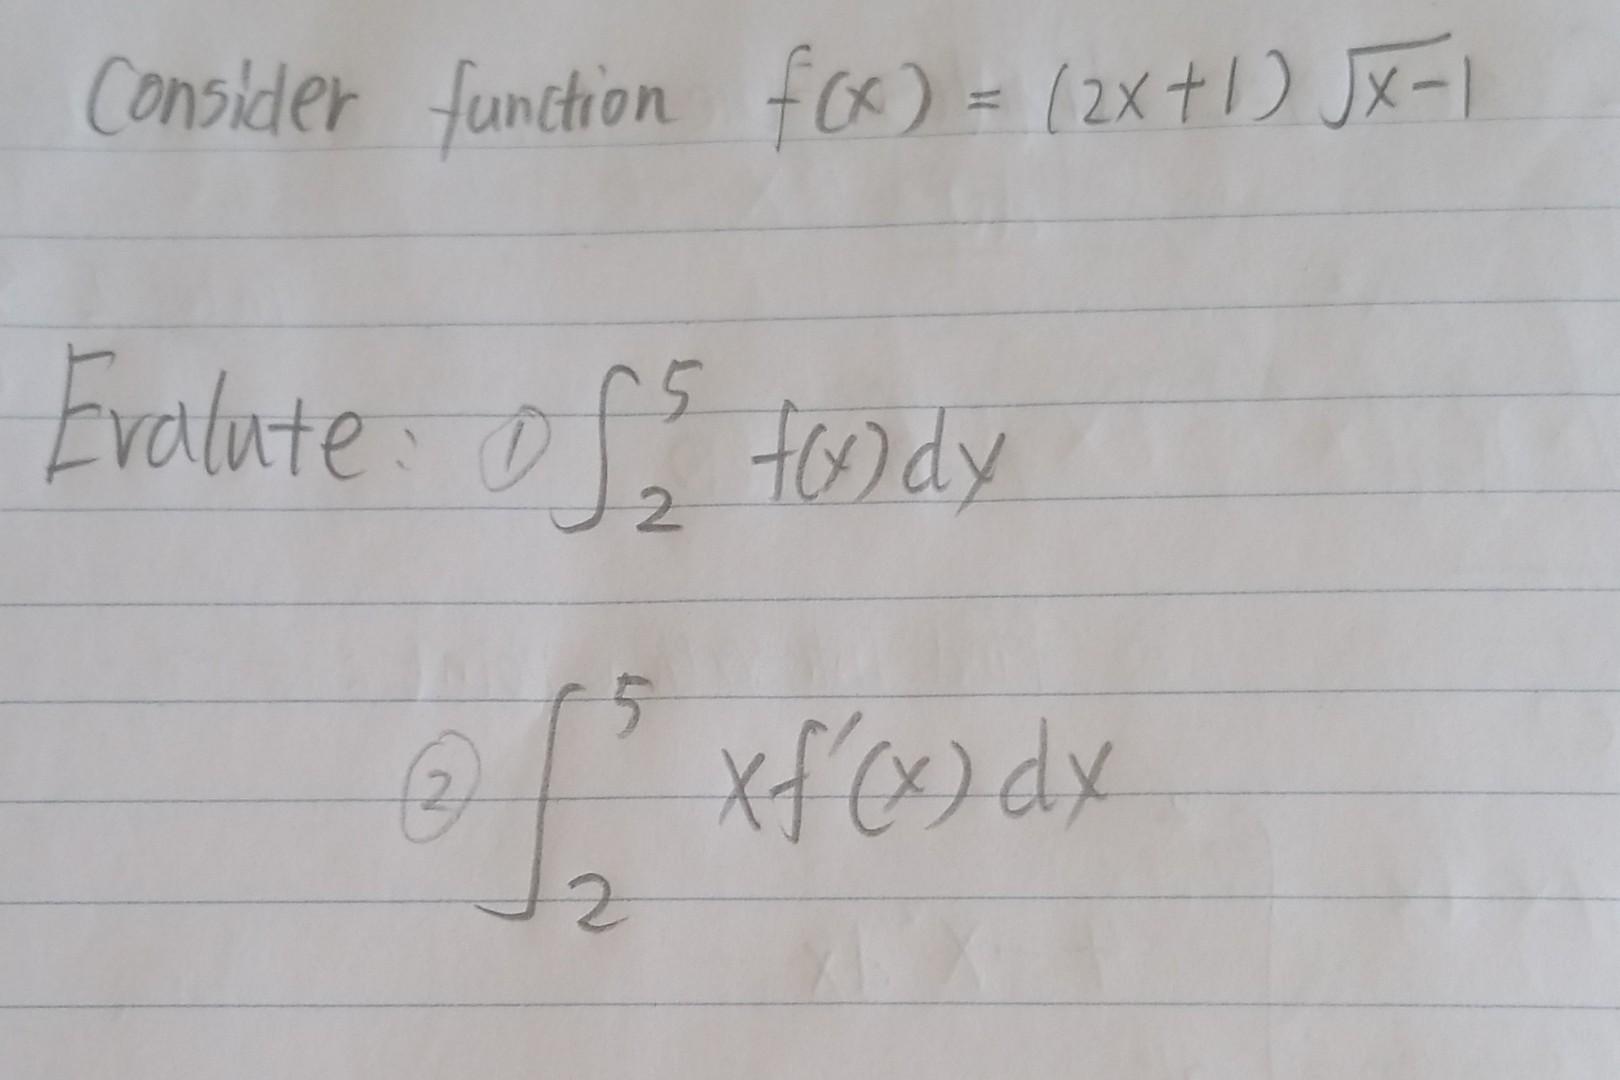 Consider function f(x) = (2x+1) √x-1
Evalute: ① ∫₂⁵ f(x) dy
② ∫₂⁵ xf'(x) dx